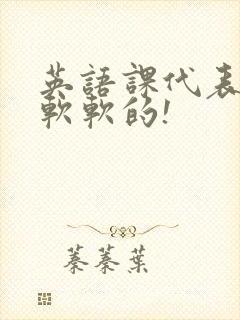 英語課代表
軟軟的!
蓁蓁葉